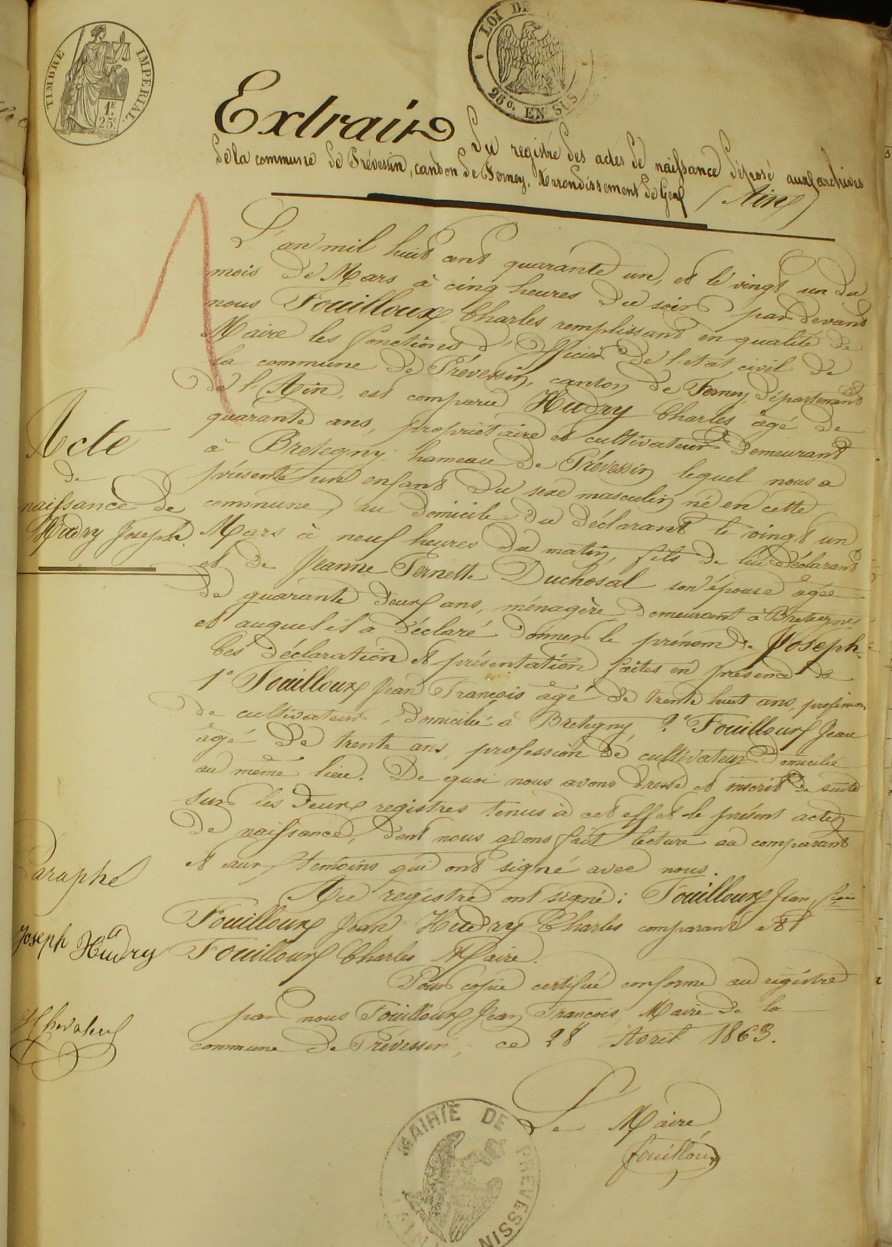 TIMBRE IMPERIAL
1F. 25C.
LOI DE
25c. EN SUS
Extrait Du registre des actes de naissance déposé aux archives
de la commune de Prévessin, canton de Ferney, Arrondissement de Gex (Ain)
L'an mil huit cent quarante un, et le vingt un du
mois de Mars à cinq heures du soir, par devant
nous Fouilloux Charles remplissant en qualité de
Maire les fonctions d'officier de l'état civil de
la commune de Prévessin, canton de Ferney, Département
de l'Ain, est comparu Hudry Charles âgé de
quarante ans, propriétaire et cultivateur demeurant
à Bretigny hameau de Prévessin lequel nous a
présenté un enfant du sexe masculin né en cette
commune, au domicile du déclarant le vingt un
Mars à neuf heures du matin, fils de lui déclarant
et de Jeanne Pernette Duchosal son épouse âgée
de quarante deux ans, ménagère demeurant à Bretigny
et auquel il a déclaré donner le prénom de Joseph.
Ces déclaration et présentation faites en présence de
1° Fouilloux Jean François âgé de trente huit ans, profession
de cultivateur, domicilié à Bretigny 2° Fouilloux Jean
âgé de trente ans, profession de cultivateur domicilié
au même lieu. De quoi nous avons dressé et inscrit de suite
sur les deux registres tenus à cet effet le présent acte
de naissance, dont nous avons fait lecture au comparant
et aux témoins qui ont signé avec nous.
Au registre ont signé: Fouilloux Jean fçois
Fouilloux Jean Hudry Charles comparant et
Fouilloux Charles Maire.
Pour copie certifiée conforme au registre
par nous Fouilloux Jean François Maire de la
commune de Prévessin, ce 28 Avril 1863.
Le Maire
fouilloux
MAIRIE DE PREVESSIN
Acte
de
naissance de
Hudry Joseph.
Paraphé
Joseph Hudry